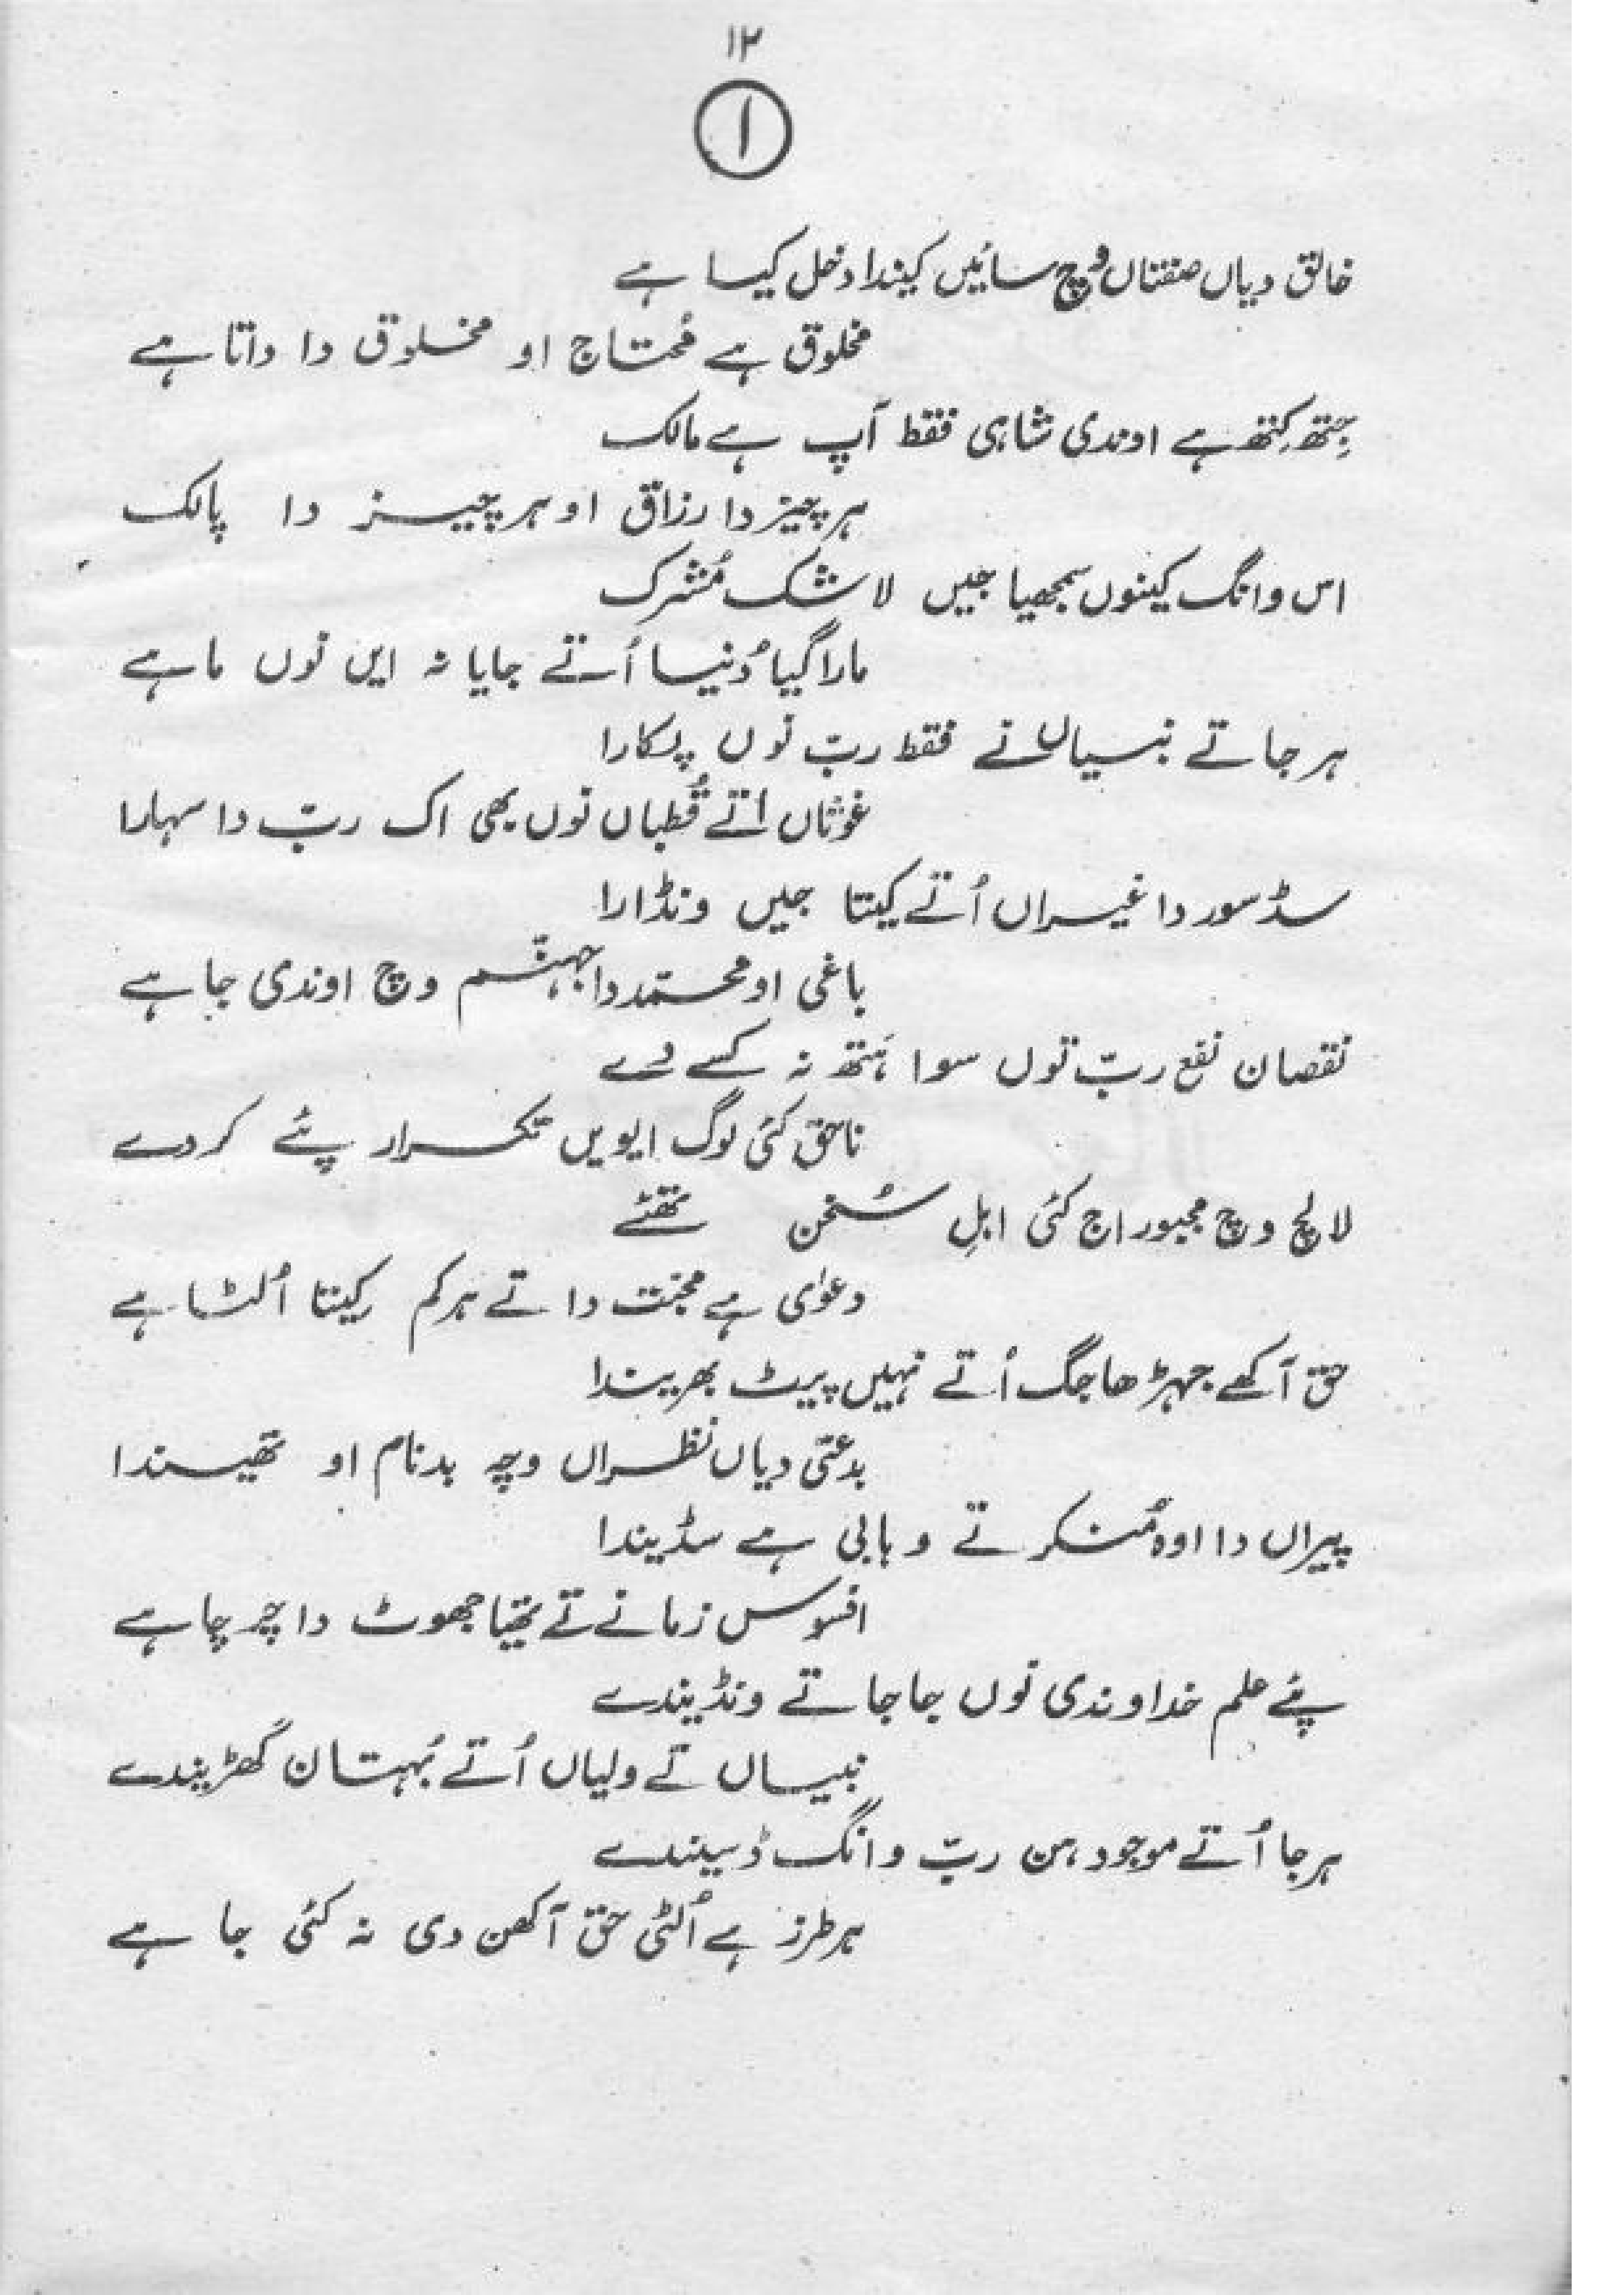 ۱۲
۱
خالق دیاں صفتاں وچ سائیں کیندا دخل کیسا ہے
مخلوق ہے مُحتاج او مخلوق دا داتا ہے
جِتھ کِتھ ہے اوندی شاہی فقط آپ ہے مالک
ہر چیز دا رزاق او ہر چیز دا پالک
اس وانگ کینوں سمجھیا جیں لاشک مُشرک
مارا گیا دُنیا اُتے جایا نہ ایں نوں ما ہے
ہر جا تے نبیاں نے فقط ربّ نوں پکارا
غوثاں اتے قُطباں نوں بھی اک ربّ دا سہارا
سڈ سور دا غیراں اُتے کیتا جیں ونڈارا
باغی او محمّد دا جہنّم وچ اوندی جا ہے
نقصان نفع ربّ توں سوا ہَتھ نہ کسے دے
ناحق کئی لوگ ایویں تکرار پئے کردے
لالچ وچ مجبور اج کئی اہلِ سُخن تھئے
دعوٰی ہے محبّت دا تے ہر کم کیتا اُلٹا ہے
حق آکھے جہڑھا جگ اُتے نہیں پیٹ بھریندا
بدعتی دیاں نظراں وچہ بدنام او تھیندا
پیراں دا اوہ مُنکر تے وہابی ہے سڈیندا
افسوس زمانے تے تھیا جھوٹ دا چرچا ہے
پئے علم خداوندی نوں جا جا تے ونڈیندے
نبیاں تے ولیاں اُتے بُہتان گھڑیندے
ہر جا اُتے موجود ہن ربّ وانگ ڈسیندے
ہر طرز ہے اُلٹی حق آکھن دی نہ کئی جا ہے